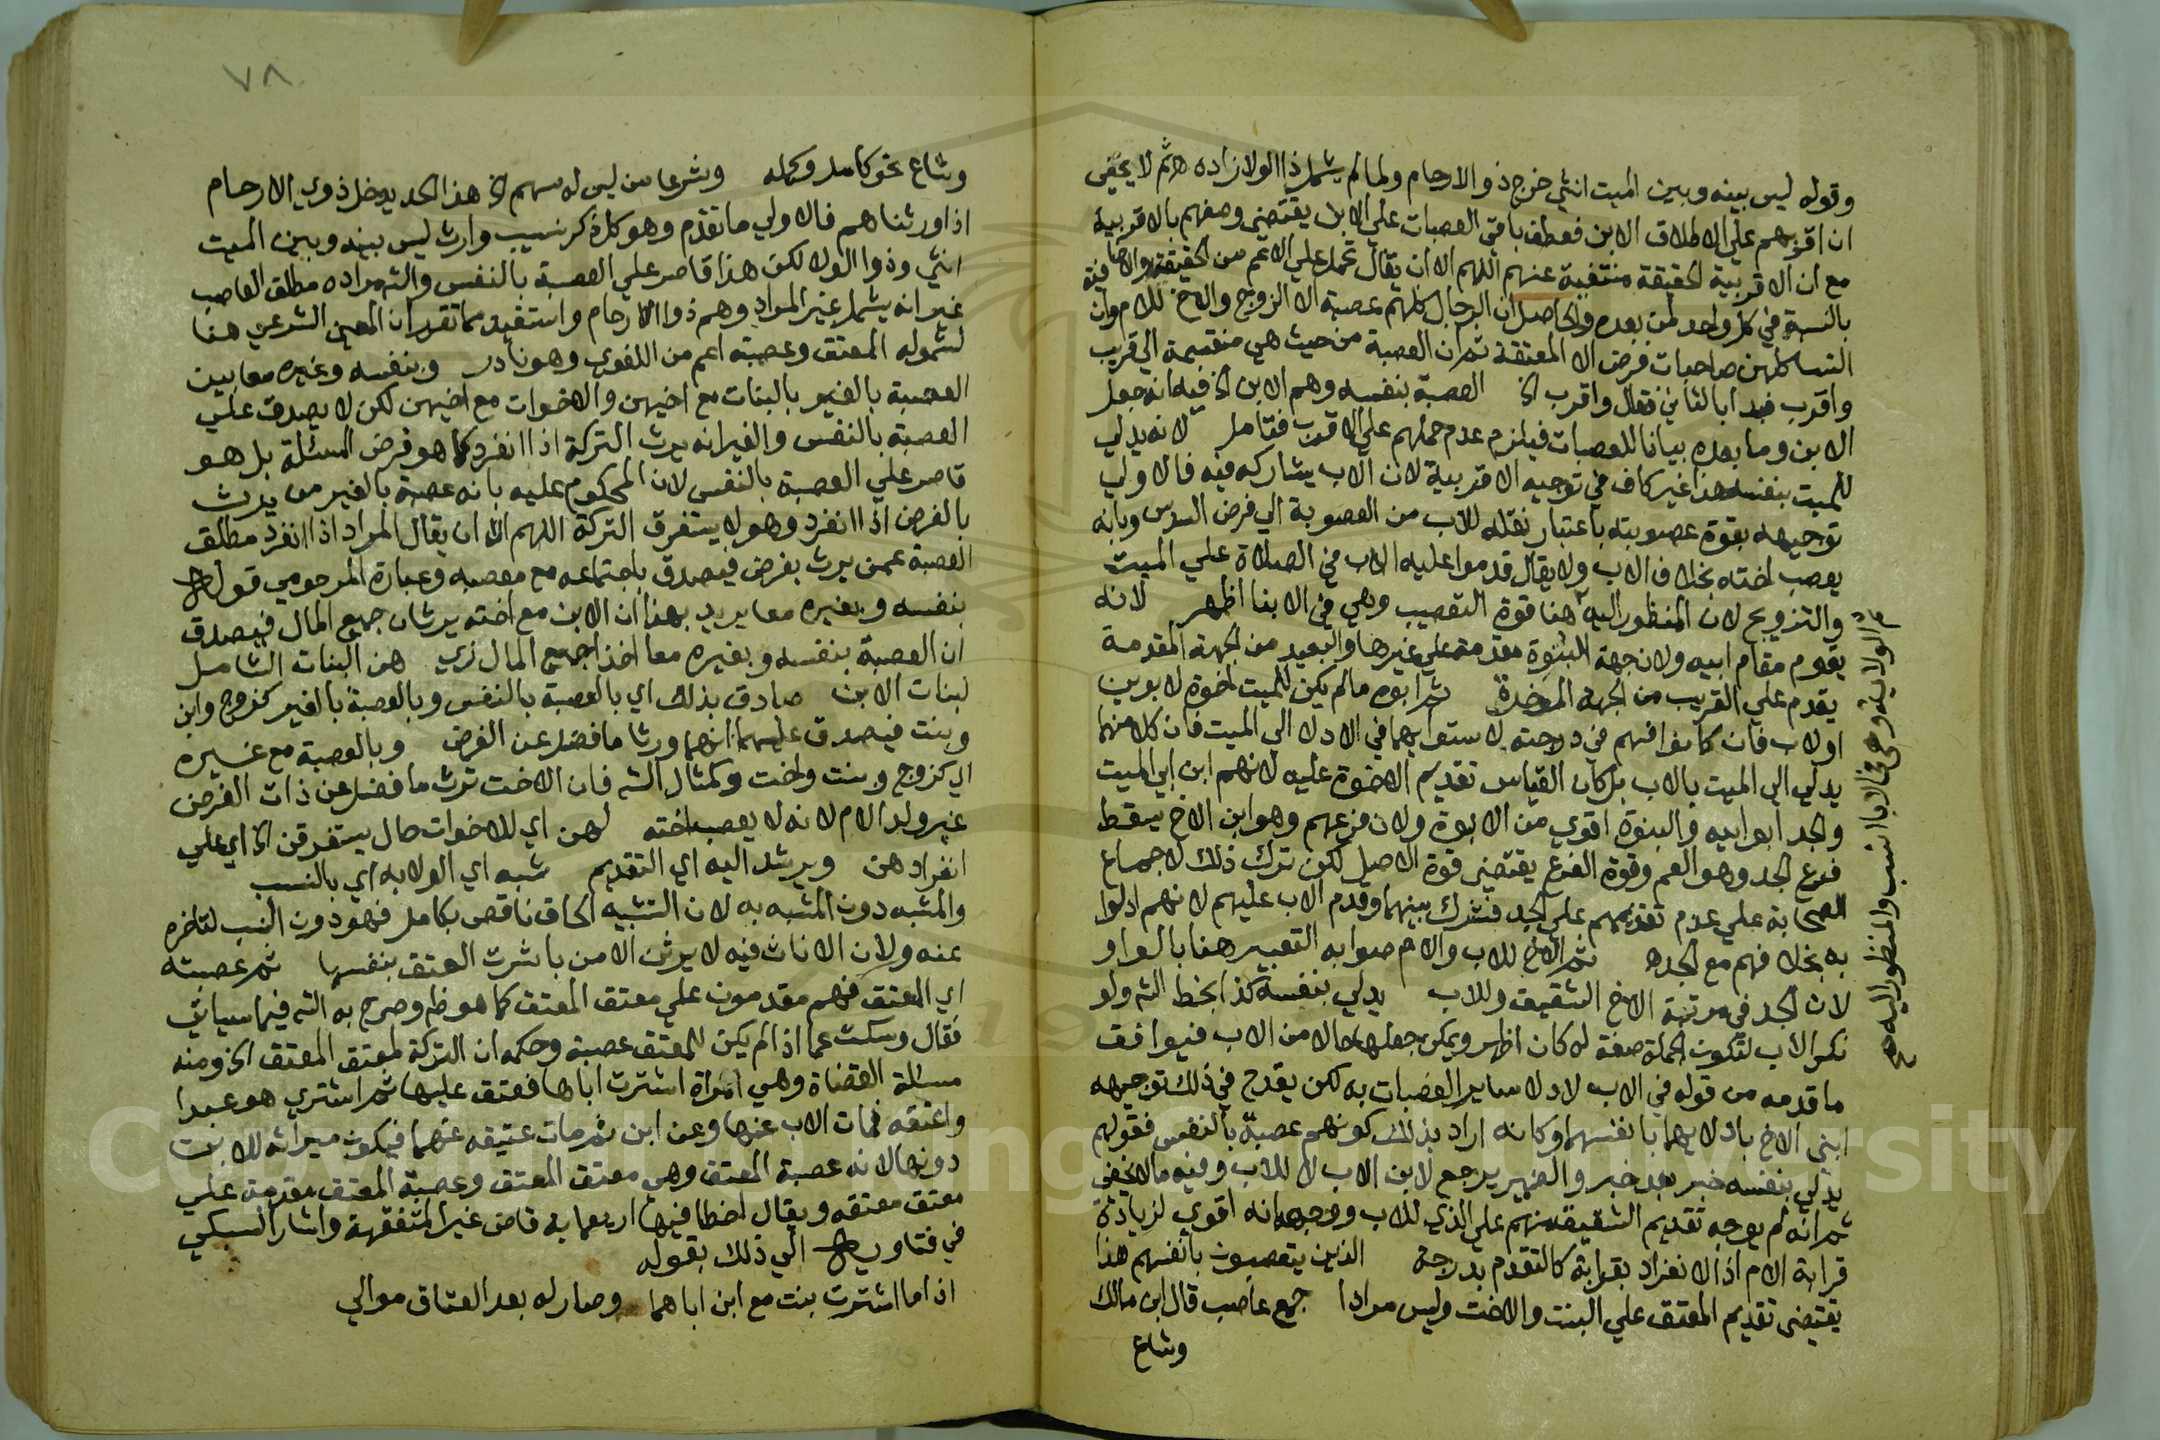 وقوله ليس بينه وبين الميت انثي خرج ذو الارحام ولما لم يشمل ذا الولا زاده ثم لا يخفي
ان اقربهم علي الاطلاق الابن فعطف باقي العصبات علي الابن يقتضي وصفهم بالاقربية
مع ان الاقربية الحقيقة منتفية عنهم اللهم الا ان يقال تحمل علي الاعم من الحقيقة والاضافية
بالنسبة في كل واحد لمن بعده والحاصل ان الرجال كلهم عصبة الا الزوج والاخ للام وان
النسا كلهن صاحبات فرض الا المعتقة ثم ان العصبة من حيث هي منقسمة الي قريب
واقرب فبدا بالثاني فقال واقرب الخ العصبة بنفسه وهم الابن الخ فيه انه جعل
الابن وما بعده بيانا للعصبات فيلزم عدم حملهم علي الاقرب فتامل لانه يدلي
للميت بنفسه هذا غير كاف في توجيه الاقربية لان الاب يشاركه فيه فالاولي
توجيهه بقوة عصوبته باعتبار نقله للاب من العصوبة الي فرض السدس وبانه
يعصب اخته بخلاف الاب ولا يقال قدموا عليه الاب في الصلاة علي الميت
والتزويج لان المنظور اليه هنا قوة التعصيب وهي في الابنا اظهر لانه
يقوم مقام ابيه ولان جهة البنوة مقدمة علي غيرها والبعيد من الجهة المقدمة
يقدم علي القريب من الجهة الموخرة ثم ابوه ما لم يكن للميت اخوة لابوين
او لاب فان كانوا فهم في درجته لاستوايهما في الادلا الي الميت فان كلا منهما
يدلي الي الميت بالاب بل كان القياس تقديم الاخوة عليه لانهم ابن ابي الميت
والجد ابو ابيه والبنوة اقوي من الابوة ولان فرعهم وهو ابن الاخ يسقط
فرع الجد وهو العم وقوة الفرع يقتضي قوة الاصل لكن ترك ذلك لاجماع
الصحابة علي عدم تقديمهم علي الجد فشرك بينهما وقدم الاب عليهم لانهم ادلوا
به بخلافهم مع الجد ثم الاخ للاب والام صوابه التعبير هنا بالواو
لان الجد في مرتبة الاخ الشقيق وللاب يدلي بنفسه كذا بخط الشه ولو
نكر الاب لتكون الجملة صفة له كان اظهر ويمكن جعلها حالا من الاب فيوافق
ما قدمه من قوله في الاب لادلا ساير العصبات به لكن يقدح في ذلك توجيهه
ابني الاخ بادلايهما بانفسهما وكانه اراد بذلك كونهم عصبة بالنفس فقولهم
يدلي بنفسه خبر بعد خبر والضمير يرجع لابن الاب لا للاب وفيه ما لا يخفي
ثم انه لم يوجه تقديم الشقيق منهم علي الذي للاب ووجهه انه اقوي لزيادة
قرابة الام اذ الانفراد بقرابة كالتقدم بدرجة الذين يتعصبون بانفسهم هذا
يقتضي تقديم المعتق علي البنت والاخت وليس مرادا جمع عاصب قال ابن مالك
وشاع
الولاية وهي في الابا انسب والمنظور اليه صح
٧٨
وشاع نحو كامل وكمله وشرعا من ليس له سهم الخ هذا الحد يدخل ذوي الارحام
اذا ورثناهم فالاولي ما تقدم وهو كل ذكر نسيب وارث ليس بينه وبين الميت
انثي وذوا الولا لكن هذا قاصر علي العصبة بالنفس والشه مراده مطلق العاصب
غير انه يشمل غير المراد وهم ذوا الارحام واستفيد مما تقرر ان المعني الشرعي هنا
لشموله المعتق وعصبته اعم من اللغوي وهو نادر وبنفسه وغيره معا بين
العصبة بالغير بالبنات مع اخيهن والاخوات مع اخيهن لكن لا يصدق علي
العصبة بالنفس والغير انه يرث التركة اذا انفرد كما هو فرض المسئلة بل هو
قاصر علي العصبة بالنفس لان المحكوم عليه بانه عصبة بالغير من يرث
بالفرض اذا انفرد وهو لا يستغرق التركة اللهم الا ان يقال المراد اذا انفرد مطلق
العصبة عمن يرث بفرض فيصدق باجتماعه مع معصبه وعبارة المرحومي قوله
بنفسه وبغيره معا يريد بهذا ان الابن مع اخته يرثان جميع المال فيصدق
ان العصبة بنفسه وبغيره معا اخذا جميع المال زي هن البنات الشامل
لبنات الابن صادق بذلك اي بالعصبة بالنفس وبالعصبة بالغير كزوج وابن
وبنت فيصدق عليهما انهما ورثا ما فضل عن الفرض وبالعصبة مع غيره
اي كزوج وبنت واخت وكمثال الشه فان الاخت ترث ما فضل عن ذات الفرض
غير ولد الام لانه لا يعصب اخته لهن اي للاخوات حال يستغرقن الخ اي علي
انفرادهن ويرشد اليه اي التقديم شبه اي الولا به اي بالنسب
والمشبه دون المشبه به لان التشبيه الحاق ناقص بكامل فهو دون النسب لتاخره
عنه ولان الاناث فيه لا يرثن الا من باشرت العتق بنفسها ثم عصبته
اي المعتق فهم مقدمون علي معتق المعتق كما هو ظ وصرح به الشه فيما سياتي
فقال وسكت عما اذا لم يكن للمعتق عصبة وحكمه ان التركة لمعتق المعتق الخ ومنه
مسئلة القضاة وهي امراة اشترت اباها فعتق عليها ثم اشتري هو عبدا
واعتقه فمات الاب عنها وعن ابن ثم مات عتيقه عنهما فيكون ميراثه للابن
دونها لانه عصبة المعتق وهي معتق المعتق وعصبة المعتق مقدمة علي
معتق معتقه ويقال اخطا فيها اربعماية قاض غير المتفقهة واشار السبكي
في فتاويه الي ذلك بقوله
اذا ما اشترت بنت مع ابن اباهما وصار له بعد العتاق موالي